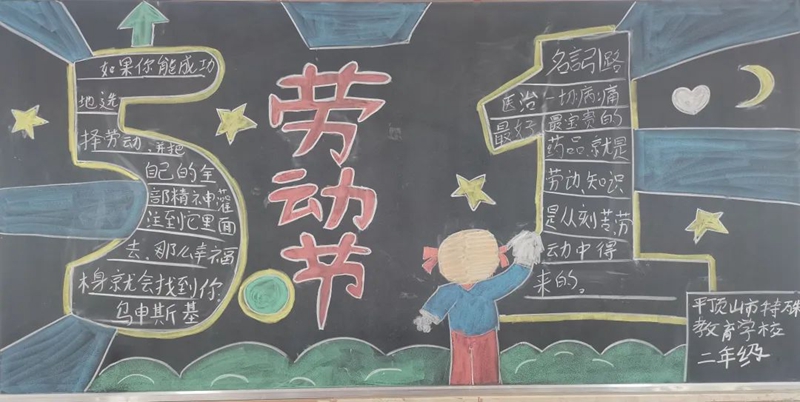 如果你能成功
地选
择劳动,并把
自己的全
部精神灌
注到它里面
去,那么幸福
本身就会找到你
乌申斯基
劳动节
名言引路
医治一切病痛
最好最宝贵的
药品,就是
劳动,知识
是从刻苦劳
动中得
来的。
平顶山市特殊
教育学校
二年级